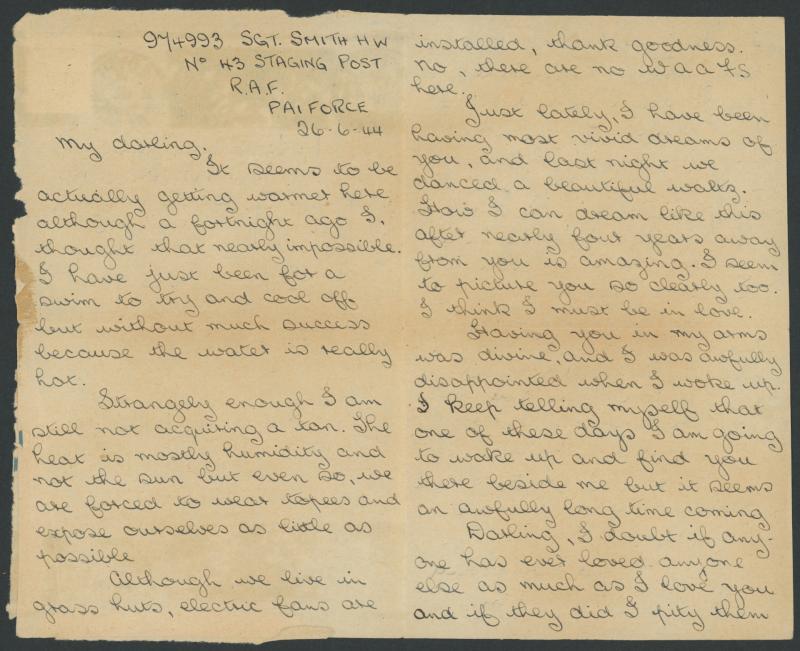 974993 SGT. SMITH H W
No 43 STAGING POST
R.A.F.
PAIFORCE
26-6-44
My darling,
It seems to be
actually getting warmer here
although a fortnight ago I
thought that nearly impossible.
I have just been for a
swim to try and cool off
but without much success
because the water is really
hot.
Strangely enough I am
still not acquiring a tan. The
heat is mostly humidity and
not the sun but even so, we
are forced to wear topees and
expose ourselves as little as
possible
Although we live in
grass huts, electric fans are
installed, thank goodness.
No, there are no W A A F S
here.
Just lately, I have been
having most vivid dreams of
you, and last night we
danced a beautiful waltz.
How I can dream like this
after nearly four years away
from you is amazing. I seem
to picture you so clearly too.
I think I must be in love.
Having you in my arms
was divine, and I was awfully
disappointed when I woke up.
I keep telling myself that
one of these days I am going
to wake up and find you
there beside me but it seems
an awfully long time coming
Darling, I doubt if any-
one has ever loved anyone
else as much as I love you
and if they did I pity them